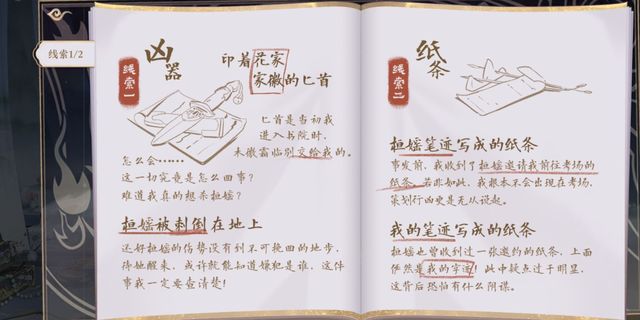 线索1/2
凶器
线索一
印着花家
家徽的匕首
匕首是当初我
进入书院时,
未微霜临别交给我的。
怎么会……
这一切究竟是怎么回事?
难道我真的想杀桓媱?
桓媱被刺倒在地上
还好桓媱的伤势没有到不可挽回的地步,
待她醒来,或许就能知道嫌犯是谁,这件
事我一定要查清楚!
纸条
线索二
桓媱笔迹写成的纸条
事发前,我收到了桓媱邀请我前往考场的
纸条。若非如此,我根本不会出现在考场,
策划行凶更是无从说起。
我的笔迹写成的纸条
桓媱也曾收到过一张邀约的纸条,上面
俨然是我的字迹!此中疑点过于明显,
这背后恐怕有什么阴谋。